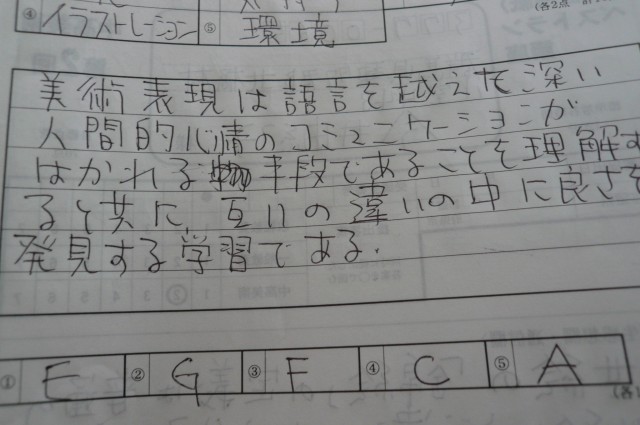 ④ イラストレーション ⑤ 環境
美術表現は語言を越えた深い
人間的心情のコミュニケーションが
はかれる手段であることを理解す
ると共に、互いの違いの中に良さを
発見する学習である.
① E ② G ③ F ④ C ⑤ A